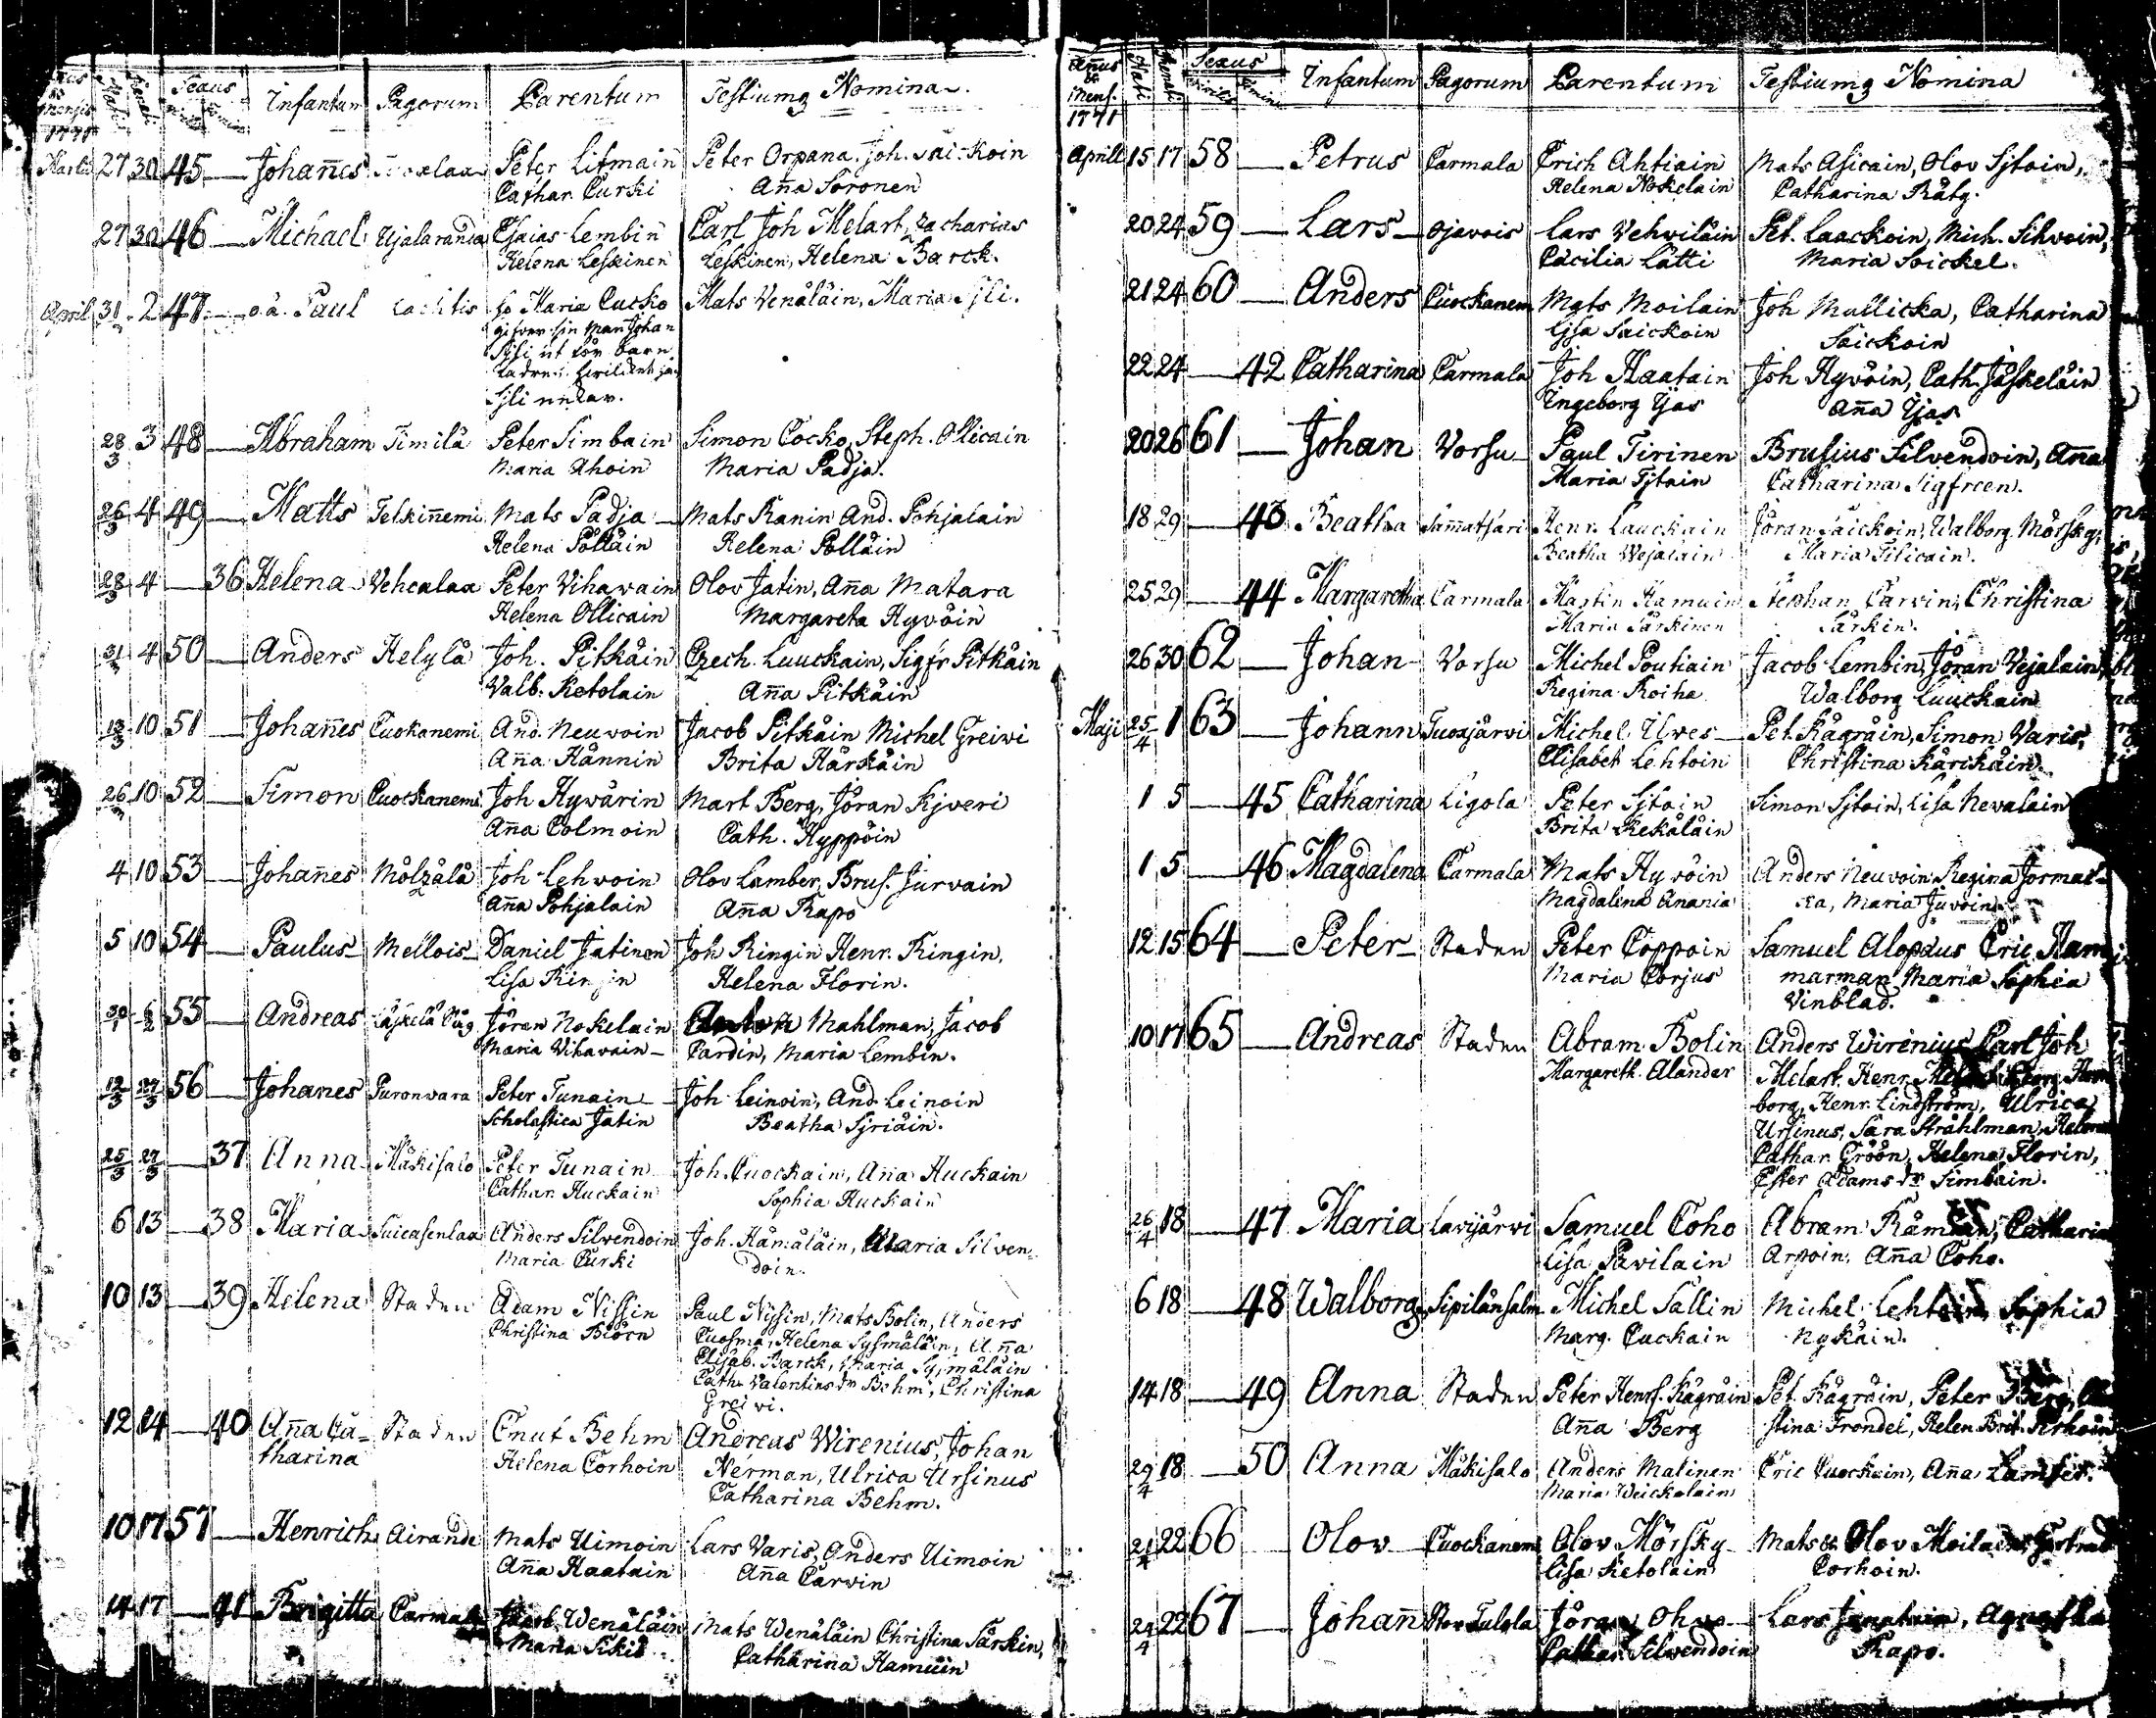 Sexus
Infantum Pagorum Parentum Testiumq Nomina
Martii 27 30 45 — Johan̄es Peter Litmain̄ Peter Orpana, Joh. Sai-koin
Cathar. Curki An̄a Soronen
27 30 46 — Michael Ujalaranda Esaias Lembin̄ Carl Joh Melart, Zacharias
Helena Leskinen Leskinen, Helena Barck.
April 31 2 47 — o.ä. Paul Lachtis Maria Cucko Mats Venäläin, Maria Sjli.
gifver sin man Johan
Sjli ut för barn
fadren, hvilcket ja
Sjli nekar.
28/3 3 48 — Abraham Timilä Peter Simbain Simon Cocko, Steph. Ollicain
Maria Ahoin Maria Padja.
26/3 4 49 — Matts Telkin̄emi Mats Padja — Mats Ranin And. Pohjalain
Helena Pölläin Helena Pölläin
28/3 4 — 36 Helena Vehcalax Peter Vihavain Olov Jatin, An̄a Matara
Helena Ollicain Margareta Hyvöin
31/3 4 50 — Anders Helylä Joh. Pitkäin Ezech. Luuckain, Sigfr Pitkäin
Valb. Ketolain An̄a Pitkäin
13/3 10 51 — Johan̄es Cuokanemi And. Neuvoin Jacob Pitkäin Michel Greivi
An̄a Hännin Brita Härkäin
26/3 10 52 — Simon Cuockanemi Joh Hyvärin Mart Berg, Jöran Sjveri
An̄a Colmoin Cath. Hyppöin
4 10 53 — Johan̄es Mölzälä Joh Lehvoin Olov Lamber, Brus. Jurvain
An̄a Pohjalain An̄a Rapo
5 10 54 — Paulus — Mellois — Daniel Jatinen Joh Ringin Henr. Ringin,
Lisa Ringin Helena Florin.
30/1 6/2 55 — Andreas Läskelä Jöran Nokelain Anton Mahlman, Jacob
Maria Vihavain — Pardin, Maria Lembin.
12/3 27/3 56 — Johanes Puronvara Peter Tunain — Joh Leinoin, And Leinoin
Scholastica Jatin Beatha Sjriäin.
25/3 27/3 — 37 Anna Mäkisalo Peter Tunain Joh. Cuockain, An̄a Huckain
Cathar. Huckain Sophia Huckain
6 13 — 38 Maria Suicasenlax Anders Silvendoin Joh. Hämäläin, Maria Silven-
Maria Curki doin.
10 13 — 39 Helena Staden Adam Nissin Paul Nissin, Mats Bolin, Anders
Christina Biörn Cuosma, Helena Sysmäläin, An̄a
Elisab. Barck, Maria Sysmäläin
Cath. Valentins dr Behm, Christina
Greivi.
12 14 — 40 An̄a Ca- Staden Cnut Behm Andreas Wirenius, Johan
tharina Helena Corhoin Nerman, Ulrica Ursinus
Catharina Behm.
10 17 57 — Henrich Airande Mats Uimoin Lars Varis, Anders Uimoin
An̄a Haatain An̄a Carvin
14 17 — 41 Brigitta Carmala Jacob Wenäläin Mats Wenäläin Christina Särkin,
Maria Sikiö Catharina Hamuin
An̄us & Mens. 1741 Nati Renati Sexus Infantum Pagorum Parentum Testiumq Nomina
April 15 17 58 — Petrus Carmala Erich Ahtiain Mats Asicain, Olov Sjtoin,
Helena Nokelain Catharina Räty.
20 24 59 — Lars — Ojavois Lars Vehviläin Pet. Laackoin, Mich. Silvoin,
Cäcilia Lätti Maria Soickel.
21 24 60 — Anders Cuockanem Mats Moilain Joh Mullicka, Catharina
Lisa Saickoin Saickoin
22 24 — 42 Catharina Carmala Joh Haatain Joh Hyvöin, Cath. Jäskeläin
Ingeborg Ijas An̄a Ijas
20 26 61 — Johan Vorsu — Paul Tirinen Brusius Silvendoin, An̄a
Maria Sjtoin Catharina Sigfreen.
18 29 — 43 Beatha Sam̄atsari Henr. Lauckain Jöran Saickoin, Walborg Mörsky,
Beatha Vejalain Maria Silicain.
25 29 — 44 Margaretha Carmala Martin Hamuin Stephan Carvin, Christina
Maria Särkinen Särkin.
26 30 62 — Johan — Vorsu Michel Poutiain Jacob Lembin, Jöran Vejalain,
Regina Roiha Walborg Luuckain
Maji 25/4 1 63 — Johann Tuoxjärvi Michel Ilves — Pet. Kägräin, Simon Varis,
Elisabet Lehtoin Christina Kärikäin.
1 5 — 45 Catharina Ligola Peter Sjtoin Simon Sjtoin, Lisa Nevalain
Brita Kekäläin
1 5 — 46 Magdalena Carmala Mats Hyvöin Anders Neuvoin, Regina Jormal-
Magdalena Anania ka, Maria Juvoin.
12 15 64 — Peter — Staden Peter Coppoin Samuel Alopæus Eric Ham-
Maria Corjus marman Maria Sophia
Vinblad.
10 17 65 — Andreas Staden Abram Bolin Anders Wirenius, Carl Joh
Margareth. Alander Melart, Henr.
borg, Henr. Lindström, Ulrica
Ursinus, Sara Stråhlman, Helena
Cathar. Gröön, Helena Florin,
Ester Adams dr Simbain.
26/4 18 — 47 Maria Lavijärvi Samuel Coho Abram Räm Catharina
Lisa Pavilain Arpoin, An̄a Coho.
6 18 — 48 Walborg Sipilänsalm Michel Sallin Michel Lehtoin, Sophia
Marg. Cuckain Nykäin.
14 18 — 49 Anna Staden Peter Henrs. Kägräin Pet. Kägräin, Peter Berg,
An̄a Berg stina Frondel, Helen Brit. Sirhoin
29/4 18 — 50 Anna Mäkisalo Anders Malinen Eric Cuockain, An̄a
Maria Weickolain
21/4 22 66 — Olov — Cuockanem Olov Mörsky Mats & Olov Moilain
Lisa Ketolain Corhoin.
24/4 22 67 — Johan̄ Stor Tulola Jöran Ohvo — Lars Agnetha
Cathar. Silvendoin Rapo.